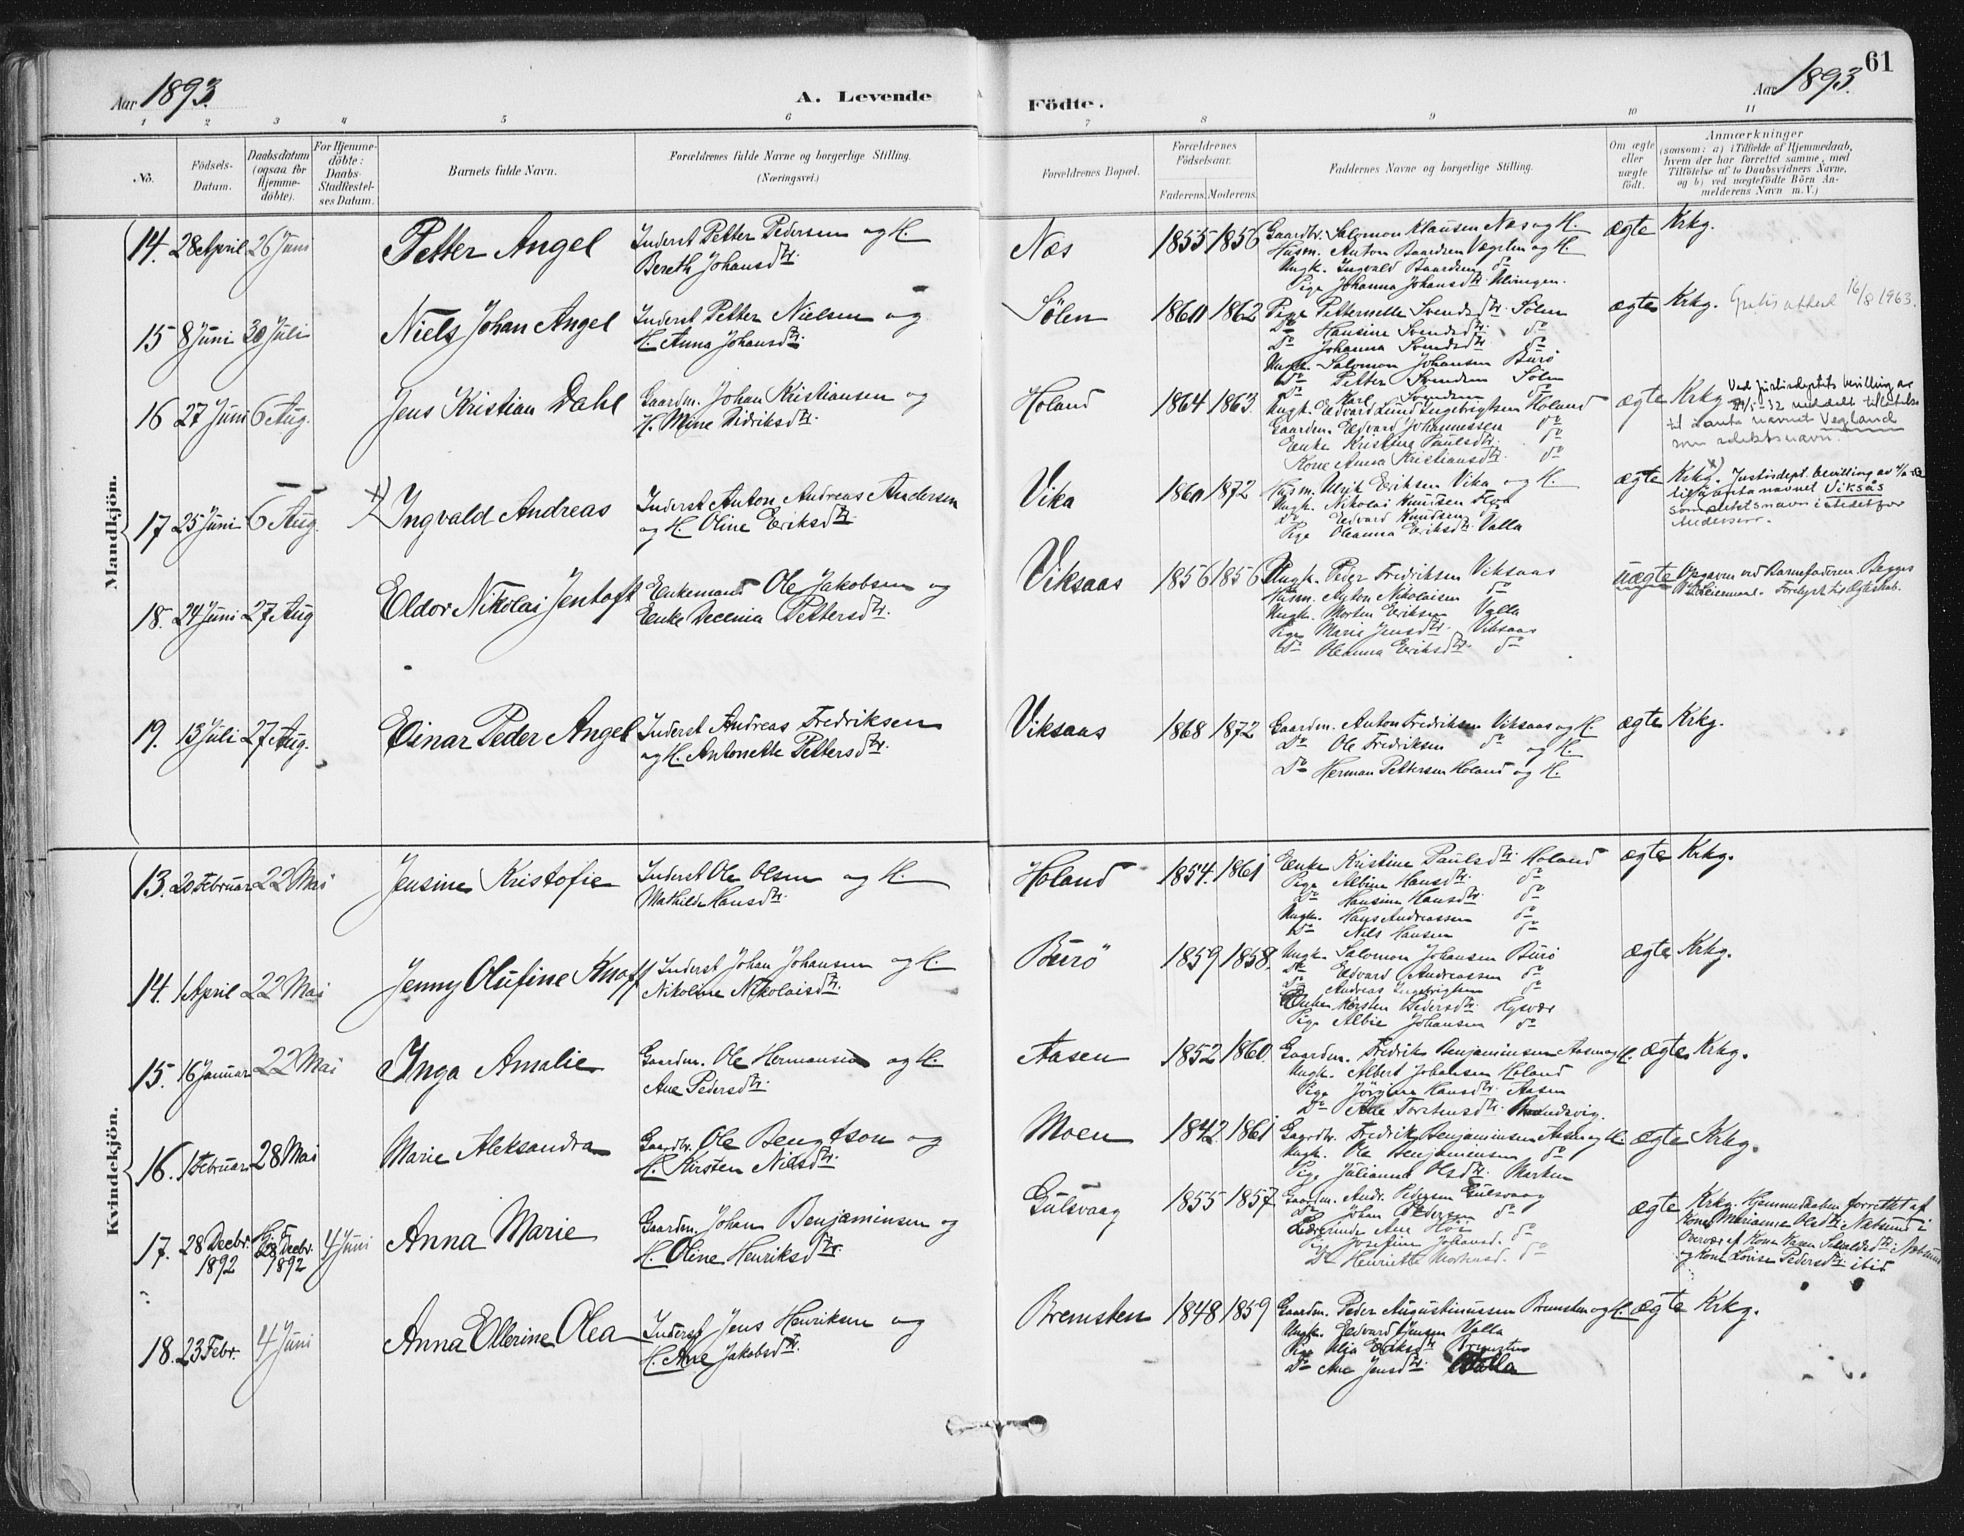 61
Aar 1893.
A. Levende
Födte.
Aar 1893.
1 2 3 4 5 6 7 8 9 10 11
No.
Födsels-Datum.
Daabsdatum (ogsaa for Hjemme-döbte).
For Hjemme-döbte: Daabs-Stadfæstel-ses Datum.
Barnets fulde Navn.
Forældrenes fulde Navne og borgerlige Stilling. (Næringsvei.)
Forældrenes Bopæl.
Forældrenes Födselsaar.
Faderens. Moderens.
Faddernes Navne og borgerlige Stilling.
Om ægte eller uægte födt.
Anmærkninger
(saasom: a) i Tilfælde af Hjemmedaab, hvem der har forrettet samme, med Tilföielse af to Daabsvidners Navne, og b) ved uægtefödte Börn An-melderens Navn m. V.)
Mandkjön.
14. 28 April 26 Juni Petter Angel Inderst Petter Pedersen og H. Næs 1855 1856 Gaardbr. Salomon Klausen Næs og H. ægte Krkg.
Bereth Johansdtr. Husm. Anton Baardsen Vægsten og H.
Ungk. Ingvald Baardsen do
Pige Johanna Johansdtr.
15 8 Juni 30 Juli Niels Johan Angel Inderst Petter Nielsen og Sølen 1860 1862 Pige Petternelle Svendsdtr. Sølen ægte Krkg. 16/8 1963.
H. Anna Johansdtr. Do Hansine Svendsdtr. do
Do Johanna Svendsdtr. do
Ungk. Salomon Johansen Burö
Do Petter Svendsen Sølen
Do Karl Svendsen do
16 27 Juni 6 Aug. Jens Kristian Dahl Gaardm. Johan Kristiansen og Holand 1864 1863. Ungk. Edvard Lund Ingebrigtsen Holand ægte Krkg. Ved Justisdeptets bevilling av
H. Mine Didriksdtr. Gaardm. Edvard Johannessen do meddelt tillatelse
Enke Kristine Paulsdtr. do til å anta navnet Vegland
Kone Anna Kristiansdtr. do som slektsnavn.
17 25 Juni 6 Aug. Ingvald Andreas Inderst Anton Andreas Andersen Vika 1860 1872 Husm. Ulrik Eriksen Vika og H. ægte Krkg. Justisdept. bevilling av
og H. Oline Eriksdtr. Ungk. Nikolai Knudsen til å anta navnet Viksås
Do Edvard Knudsen som slektsnavn istedetfor
Pige Oleanna Eriksdtr. Valla Andersen.
18. 24 Juni 27 Aug Eldor Nikolai Jentoft Enkemand Ole Jakobsen og Viksaas 1856 1856 Ungk. Peder Fredriksen Viksaas uægte Opgaven ved Barnefaderen. Begges
Enke Decenia Pettersdtr. Husm. Anton Nikolaisen do
Ungk. Morten Eriksen Valla
Pige Marie Jensdtr. Viksaas
Do Oleanna Eriksdtr. do
19. 13 Juli 27 Aug. Einar Peder Angel Inderst Andreas Fredriksen Viksaas 1868 1872 Gaardm. Anton Fredriksen Viksaas og H. ægte Krkg.
og H. Antonette Pettersdtr. Do Ole Fredriksen do og H.
Do Herman Pettersen Holand og H.
Kvindekjön.
13. 20 Februar 22 Mai Jensine Kristofie Inderst Ole Olsen og H. Holand 1854. 1861 Enke Kristine Paulsdtr. Holand ægte Krkg.
Mathilde Hansdtr. Pige Albine Hansdtr. do
Do Hansine Hansdtr. do
Ungk. Hans Andreassen do
Do Nils Hansen do
14. 1 April 22 Mai Jenny Olufine Knoff Inderst Johan Johansen og H. Burö 1859 1858. Ungk. Salomon Johansen Burö ægte Krkg.
Nikoline Nikolaisdtr. Do Edvard Andreassen do
Do Andreas Ingebrigtsen do
Enke Kirsten Pedersdtr. Hysvær
Pige Albie Johansen do
15. 16 Januar 22 Mai Inga Amalie Gaardm. Ole Hermansen og H. Aasen 1852 1860. Gaardm. Fredrik Benjaminsen Aasen og H. ægte Krkg.
Ane Pedersdtr. Ungk. Albert Johansen Holand
Pige Jörgine Hansdtr. Aasen
Do Ane Torstensdtr.
16. 1 Februar 28 Mai Marie Aleksandra Gaardbr. Ole Bengtson og Moen 1842 1861 Gaardbr. Fredrik Benjaminsen Aasen og H. ægte Krkg.
H. Kirsten Nilsdtr. Ungk. Ole Benjaminsen do
Pige Julianna Olsdtr.
17. 28 Decbr. 1892 28 Decbr. 1892 4 Juni Anna Marie Gaardm. Johan Benjaminsen og Gulsvaag 1855 1857. Gaardm. Andr. Pedersen Gulsvaag ægte Krkg. Hjemmedaaben forrettet af
H. Oline Henriksdtr. Do Johan Pedersen do Kone Marianne Olsdtr. Næsund i
Ane do Overvær af Kone
Pige Josefine Johansd. do og Kone Lovise Pedersdtr. ibid
Do Henriette do
18. 23 Febr. 4 Juni Anna Ellerine Olea Inderst Jens Henriksen og Bremsten 1848 1859 Gaardm. Peder Augustinussen Bremsten og H. ægte Krkg.
H. Ane Jakobsdtr. Ungk. Edvard Jensen Valla
Pige Eriksdtr. Bremsten
Do Ane Jensdtr. Valla